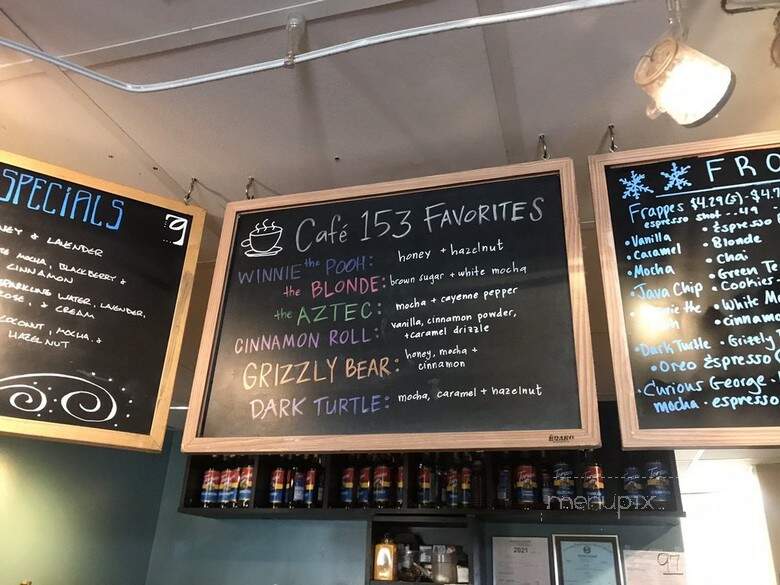 SPECIALS
9
& LAVENDER
MOCHA, BLACKBERRY &
CINNAMON
SPARKLING WATER, LAVENDER,
ROSE, & CREAM
COCONUT, MOCHA, &
HAZELNUT
Café 153 FAVORITES
WINNIE the POOH: honey + hazelnut
the BLONDE: brown sugar + white mocha
the AZTEC: mocha + cayenne pepper
CINNAMON ROLL: vanilla, cinnamon powder,
+caramel drizzle
GRIZZLY BEAR: honey, mocha +
cinnamon
DARK TURTLE: mocha, caramel + hazelnut
FRO
Frappes $4.29(s)-$4.
espresso shot..49
• Vanilla
• Caramel
• Mocha
• Java Chip
the
• Dark Turtle
• Espresso
• Blonde
• Chai
• Green Te
• Cookies
• White M
• cinnamo
• Grizzly
• Oreo Espresso
• Curious George
mocha · espresso
2021
97
menupix